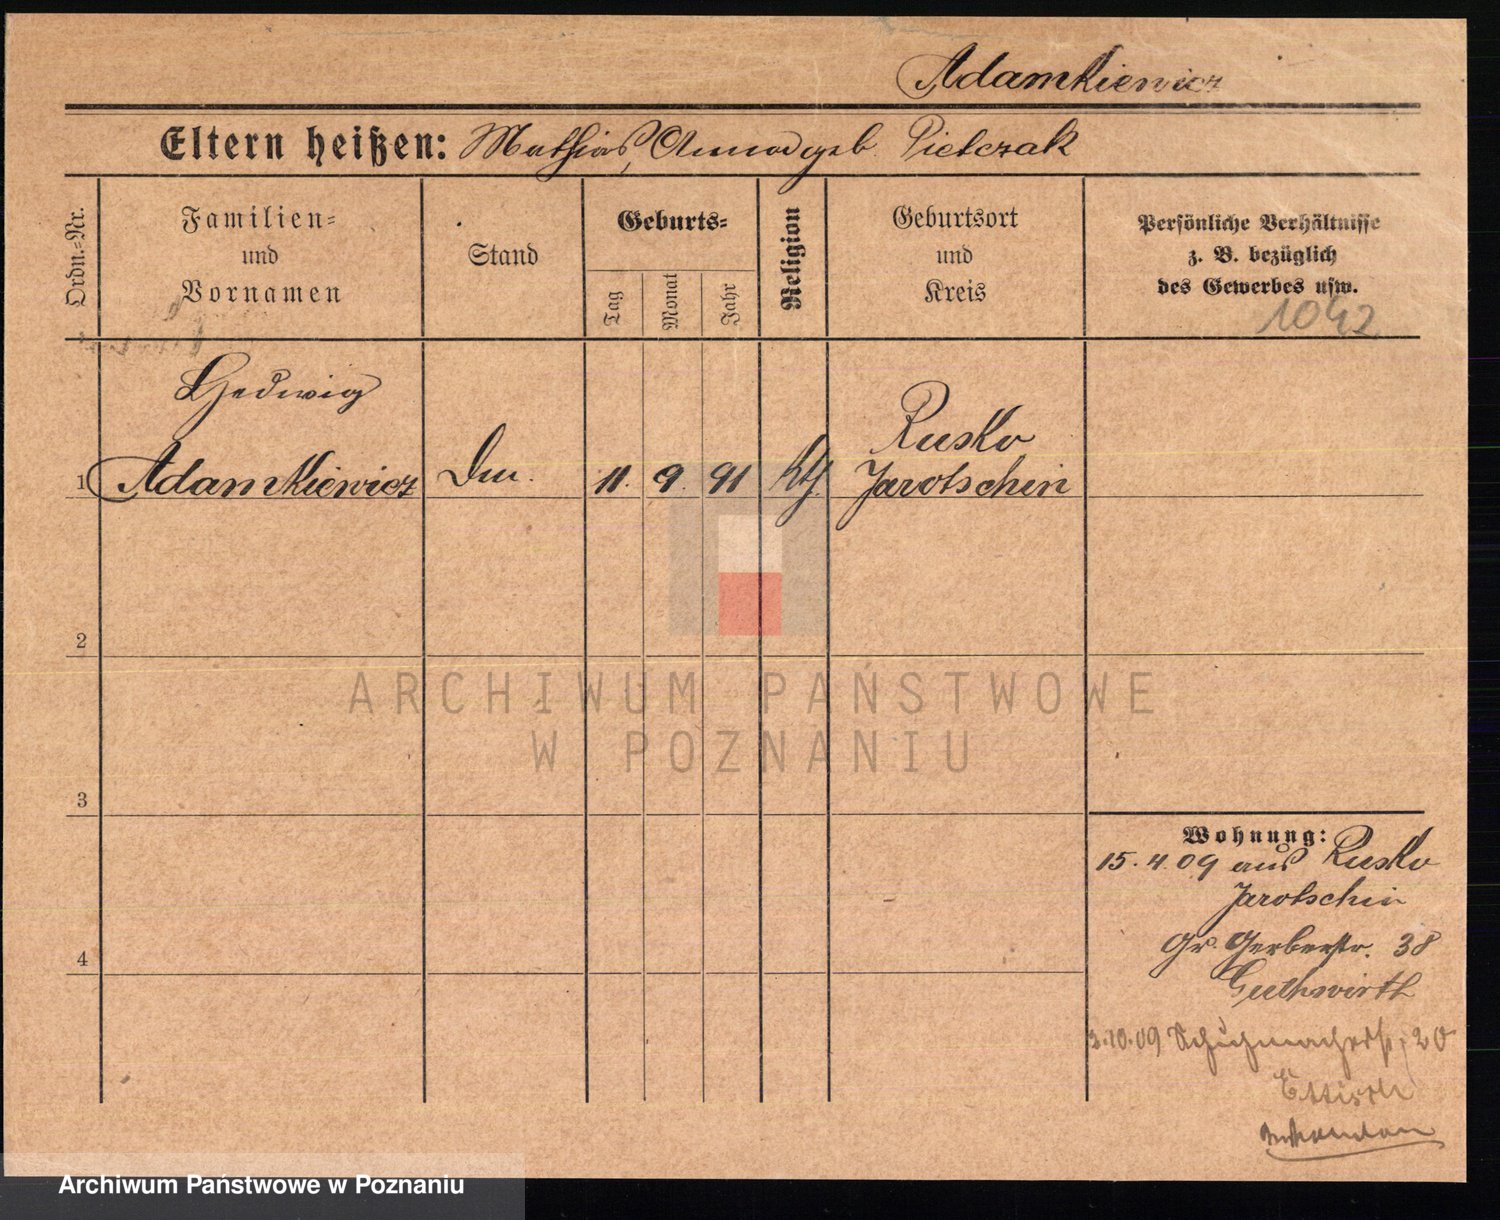 Adamkiewicz
Eltern heißen: Mathias, Anna geb. Pietczak
Ordn.=Nr.
Familien=
und
Vornamen
Stand
Geburts=
Tag
Monat
Jahr
Religion
Geburtsort
und
Kreis
Persönliche Verhältnisse
z. B. bezüglich
des Gewerbes usw.
1042
Hedwig
1 Adamkiewicz
11. 9. 91 kth.
Rusko
Jarotschin
2
ARCHIWUM PAŃSTWOWE
W POZNANIU
3
Wohnung:
15.4.09 aus Rusko
Jarotschin
Gr. Gerberstr. 38
2.10.09 Schuhmacherstr. 20
4
Archiwum Państwowe w Poznaniu